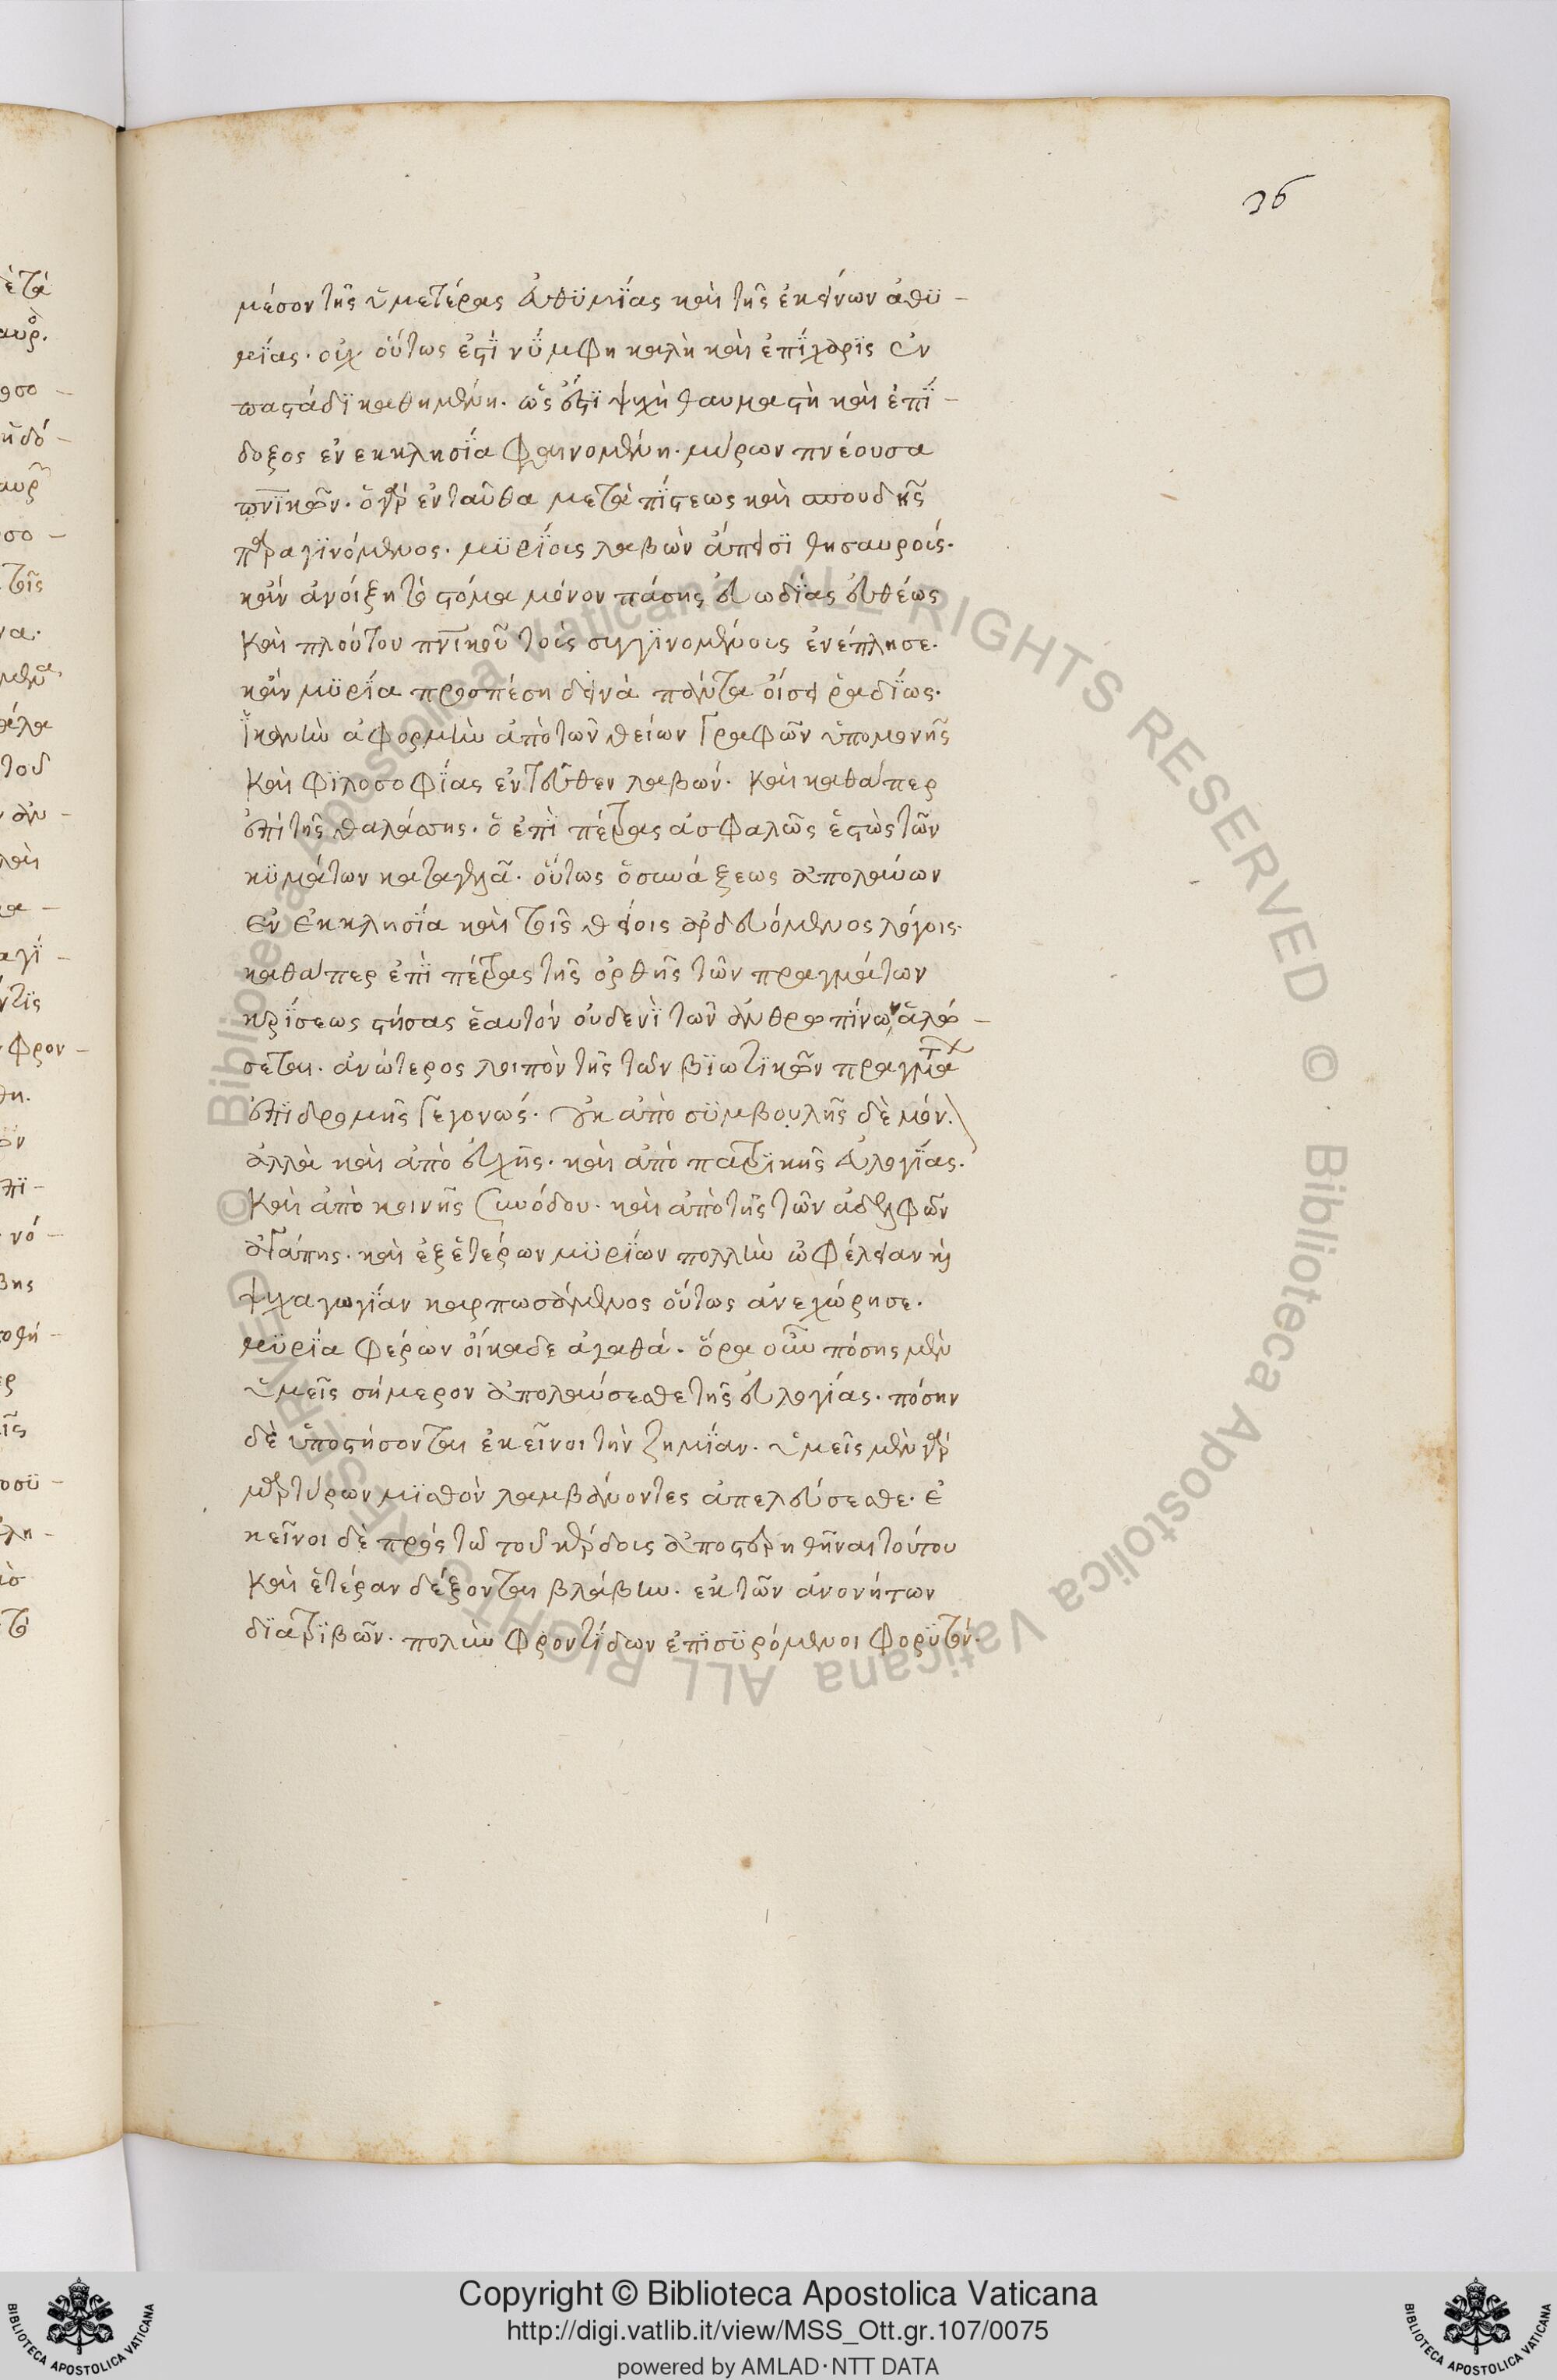 36
μέσον τῆς ὑμετέρας εὐθυμίας καὶ τῆς ἐκείνων ἀθυ-
μίας. οὐχ οὕτως ἐστὶ νύμφη καλὴ καὶ ἐπίχαρις ἐν
παστάδι καθημένη. ὡς ἔστι ψυχὴ θαυμαστὴ καὶ ἐπί-
δοξος ἐν εκκλησία φαινομένη. μύρων πνέουσα
πνικῶν. ὁ γὰρ ἐνταῦθα μετὰ πίστεως καὶ σπουδῆς
παραγινόμενος. μυρίοις λαβὼν ἄπεισι θησαυροίς.
κἂν ἀνοίξη τὸ στόμα μόνον πάσης εὐωδίας εὐθέως
καὶ πλούτου πνικοῦ τοὶς συγγινομένοις ἐνέπλησε.
κἂν μυρία προσπέση δεινὰ πάντα οἴσει ῥαδίως.
ἱκανὴν ἀφορμὴν ἀπὸ τῶν θείων Γραφῶν ὑπομονῆς
καὶ φιλοσοφίας ἐντεῦθεν λαβών. καὶ καθάπερ
ἐπὶ τῆς θαλάσσης. ὁ ἐπὶ πέτρας ἀσφαλῶς ἑστὼς τῶν
κυμάτων καταγελᾶ. οὕτως ὁ συνάξεως ἀπολαύων
ἐν ἐκκλησία καὶ τοῖς θείοις ἀρδευόμενος λόγοις.
καθάπερ ἐπὶ πέτρας τῆς ὀρθῆς τῶν πραγμάτων
κρίσεως στήσας ἑαυτόν οὐδενὶ τῶν ἀνθρωπίνων ἁλώ-
σεται. ἀνώτερος λοιπὸν τῆς τῶν βιωτικῶν πραγμάτων
ἐπιδρομῆς Γεγονώς. οὐκ ἀπὸ συμβουλῆς δὲ μόν.
ἀλλὰ καὶ ἀπὸ εὐχῆς. καὶ ἀπὸ πατρικῆς εὐλογίας.
καὶ ἀπὸ κοινῆς συνόδου. καὶ ἀπὸ τῆς τῶν ἀδελφῶν
ἀγάπης. καὶ ἐξ ἑτέρων μυρίων πολλὴν ὠφέλειαν κὶ
ψυχαγωγίαν καρπωσάμενος οὕτως ἀνεχώρησε.
μυρία φέρων οἴκαδε ἀγαθά. ὅρα οὖν πόσης μὲν
ὑμεῖς σήμερον ἀπολαύσεσθε τῆς εὐλογίας. πόσην
δὲ ὑποστήσονται ἐκεῖνοι τὴν ζημίαν. ὑμεῖς μὲν γὰρ
μαρτύρων μισθὸν λαμβάνοντες ἀπελεύσεσθε. ἐ
κεῖνοι δὲ πρὸς τῶ τοῦ κέρδους ἀποστερηθῆναι τούτου
καὶ ἑτέραν δέξονται βλάβην. ἐκ τῶν ἀνονήτων
διατριβῶν. πολὺν φροντίδων ἐπισυρόμενοι φορυτόν.
Copyright © Biblioteca Apostolica Vaticana
http://digi.vatlib.it/view/MSS_Ott.gr.107/0075
powered by AMLAD·NTT DATA